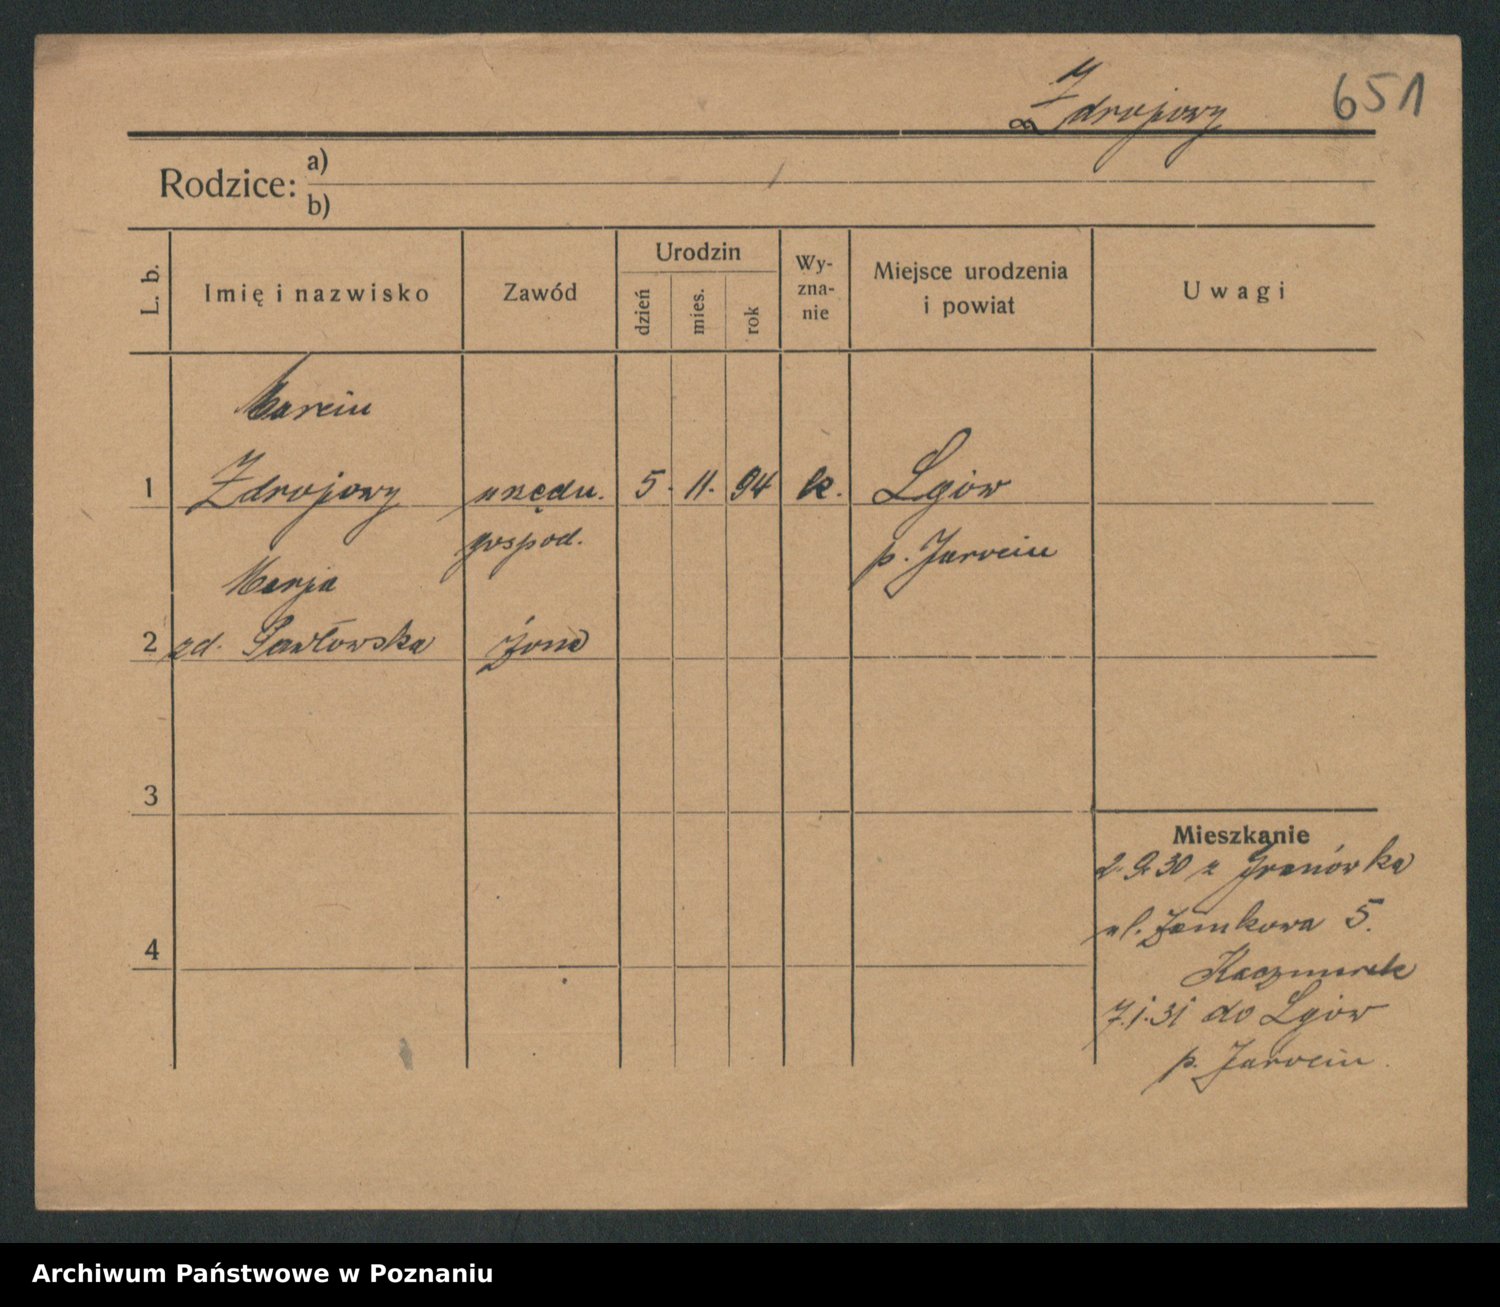 Zdrojowy 651
Rodzice: a)
b)
L. b. Imię i nazwisko Zawód Urodzin dzień mies. rok Wy-zna-nie Miejsce urodzenia i powiat Uwagi
Marcin
1 Zdrojowy urzędn. 5. 11. 94 k. Lgów
gospod. p. Jarocin
Marja
2 zd. Pawłowska żona
3
Mieszkanie
2.9.30 z Granówka
ul. Zamkowa 5.
4
Kaczmarek
7.1.31 do Lgów
p. Jarocin.
Archiwum Państwowe w Poznaniu